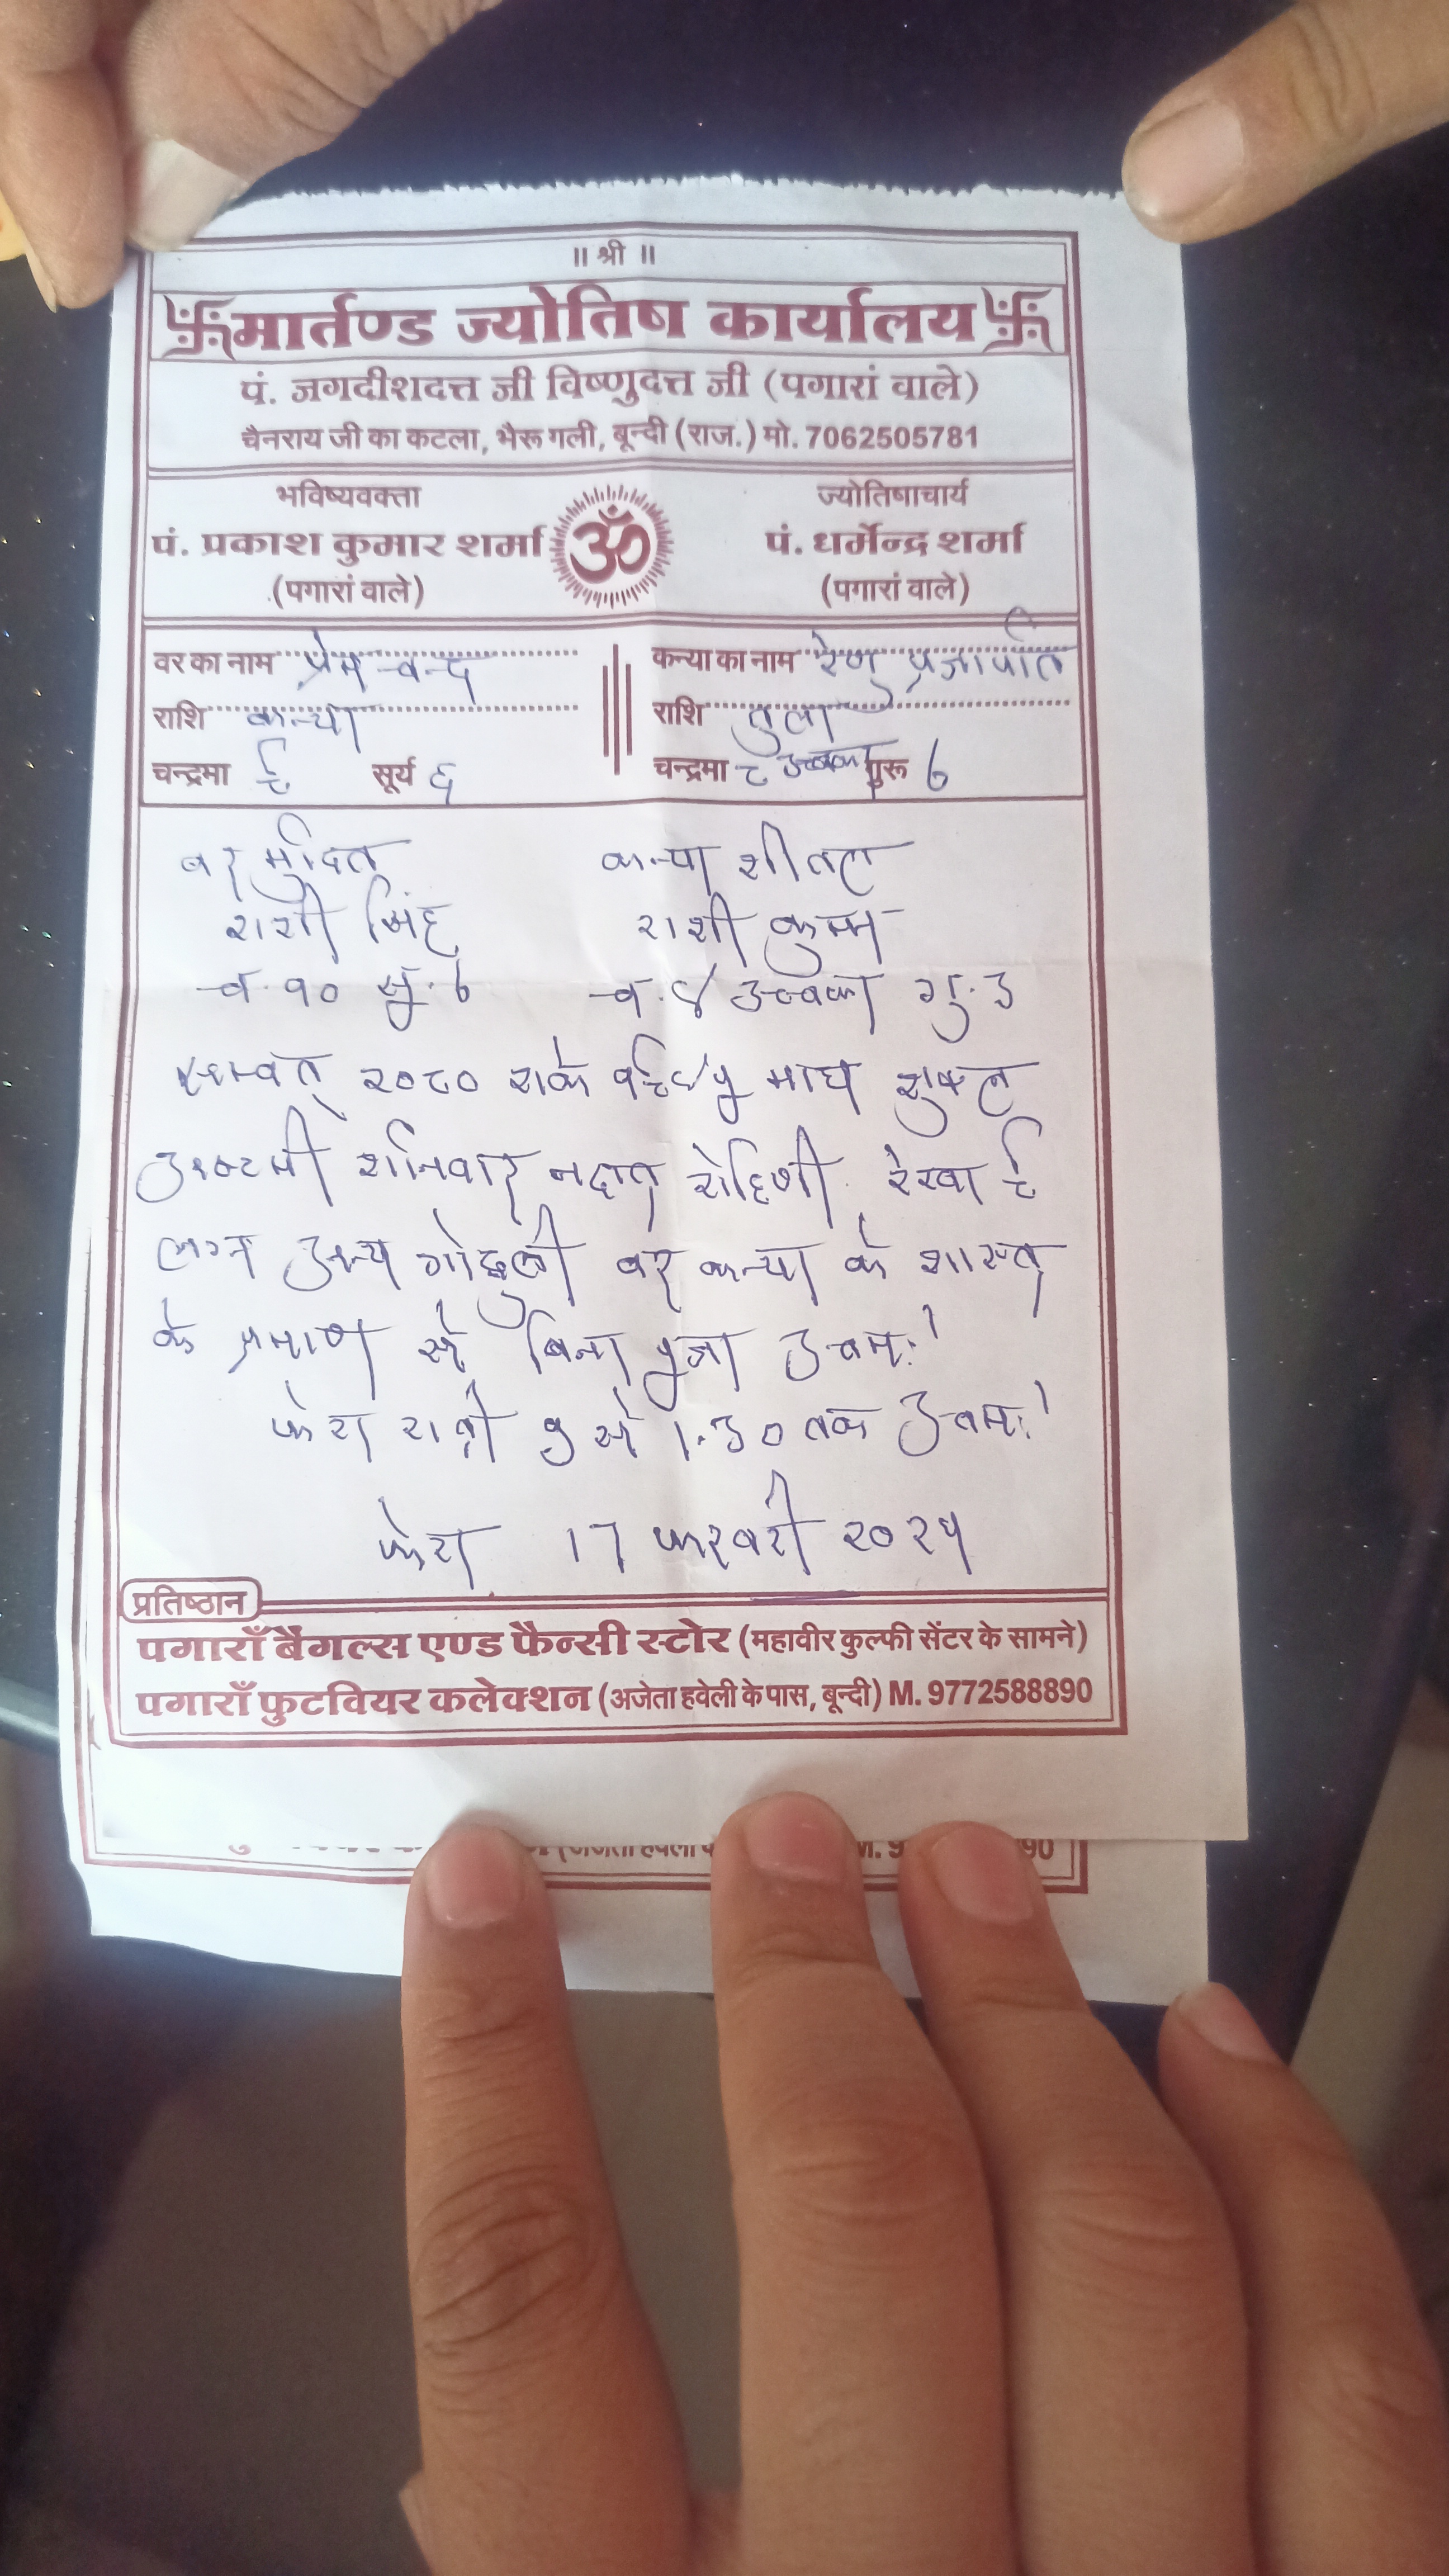 ॥ श्री ॥
मार्तण्ड ज्योतिष कार्यालय
पं. जगदीशदत्त जी विष्णुदत्त जी (पगारां वाले)
चैनराय जी का कटला, भैरू गली, बून्दी (राज.) मो. 7062505781
भविष्यवक्ता
पं. प्रकाश कुमार शर्मा
(पगारां वाले)
ॐ
ज्योतिषाचार्य
पं. धर्मेन्द्र शर्मा
(पगारां वाले)
वर का नाम प्रेमचन्द
राशि कन्या
चन्द्रमा ९ सूर्य ६
कन्या का नाम रेणु प्रजापति
राशि तुला
चन्द्रमा ८ गुरू ७
वर मुदित कन्या शीतल
राशी सिंह राशी कुम्भ
च. १० सू. ७ च. ४ गु. ३
सम्वत् २०८० शाके १९४५ माघ शुक्ल
अष्टमी शनिवार नक्षत्र रोहिणी रेखा ९
लग्न अन्य गोधुली वर कन्या के शास्त्र
के प्रमाण से बिना पूजा उत्तम।
फेरा रात्री 9 से 1.30 तक उत्तम।
फेरा 17 फरवरी
प्रतिष्ठान
पगाराँ बैंगल्स एण्ड फैन्सी स्टोर (महावीर कुल्फी सेंटर के सामने)
पगाराँ फुटवियर कलेक्शन (अजेता हवेली के पास, बून्दी) M. 9772588890